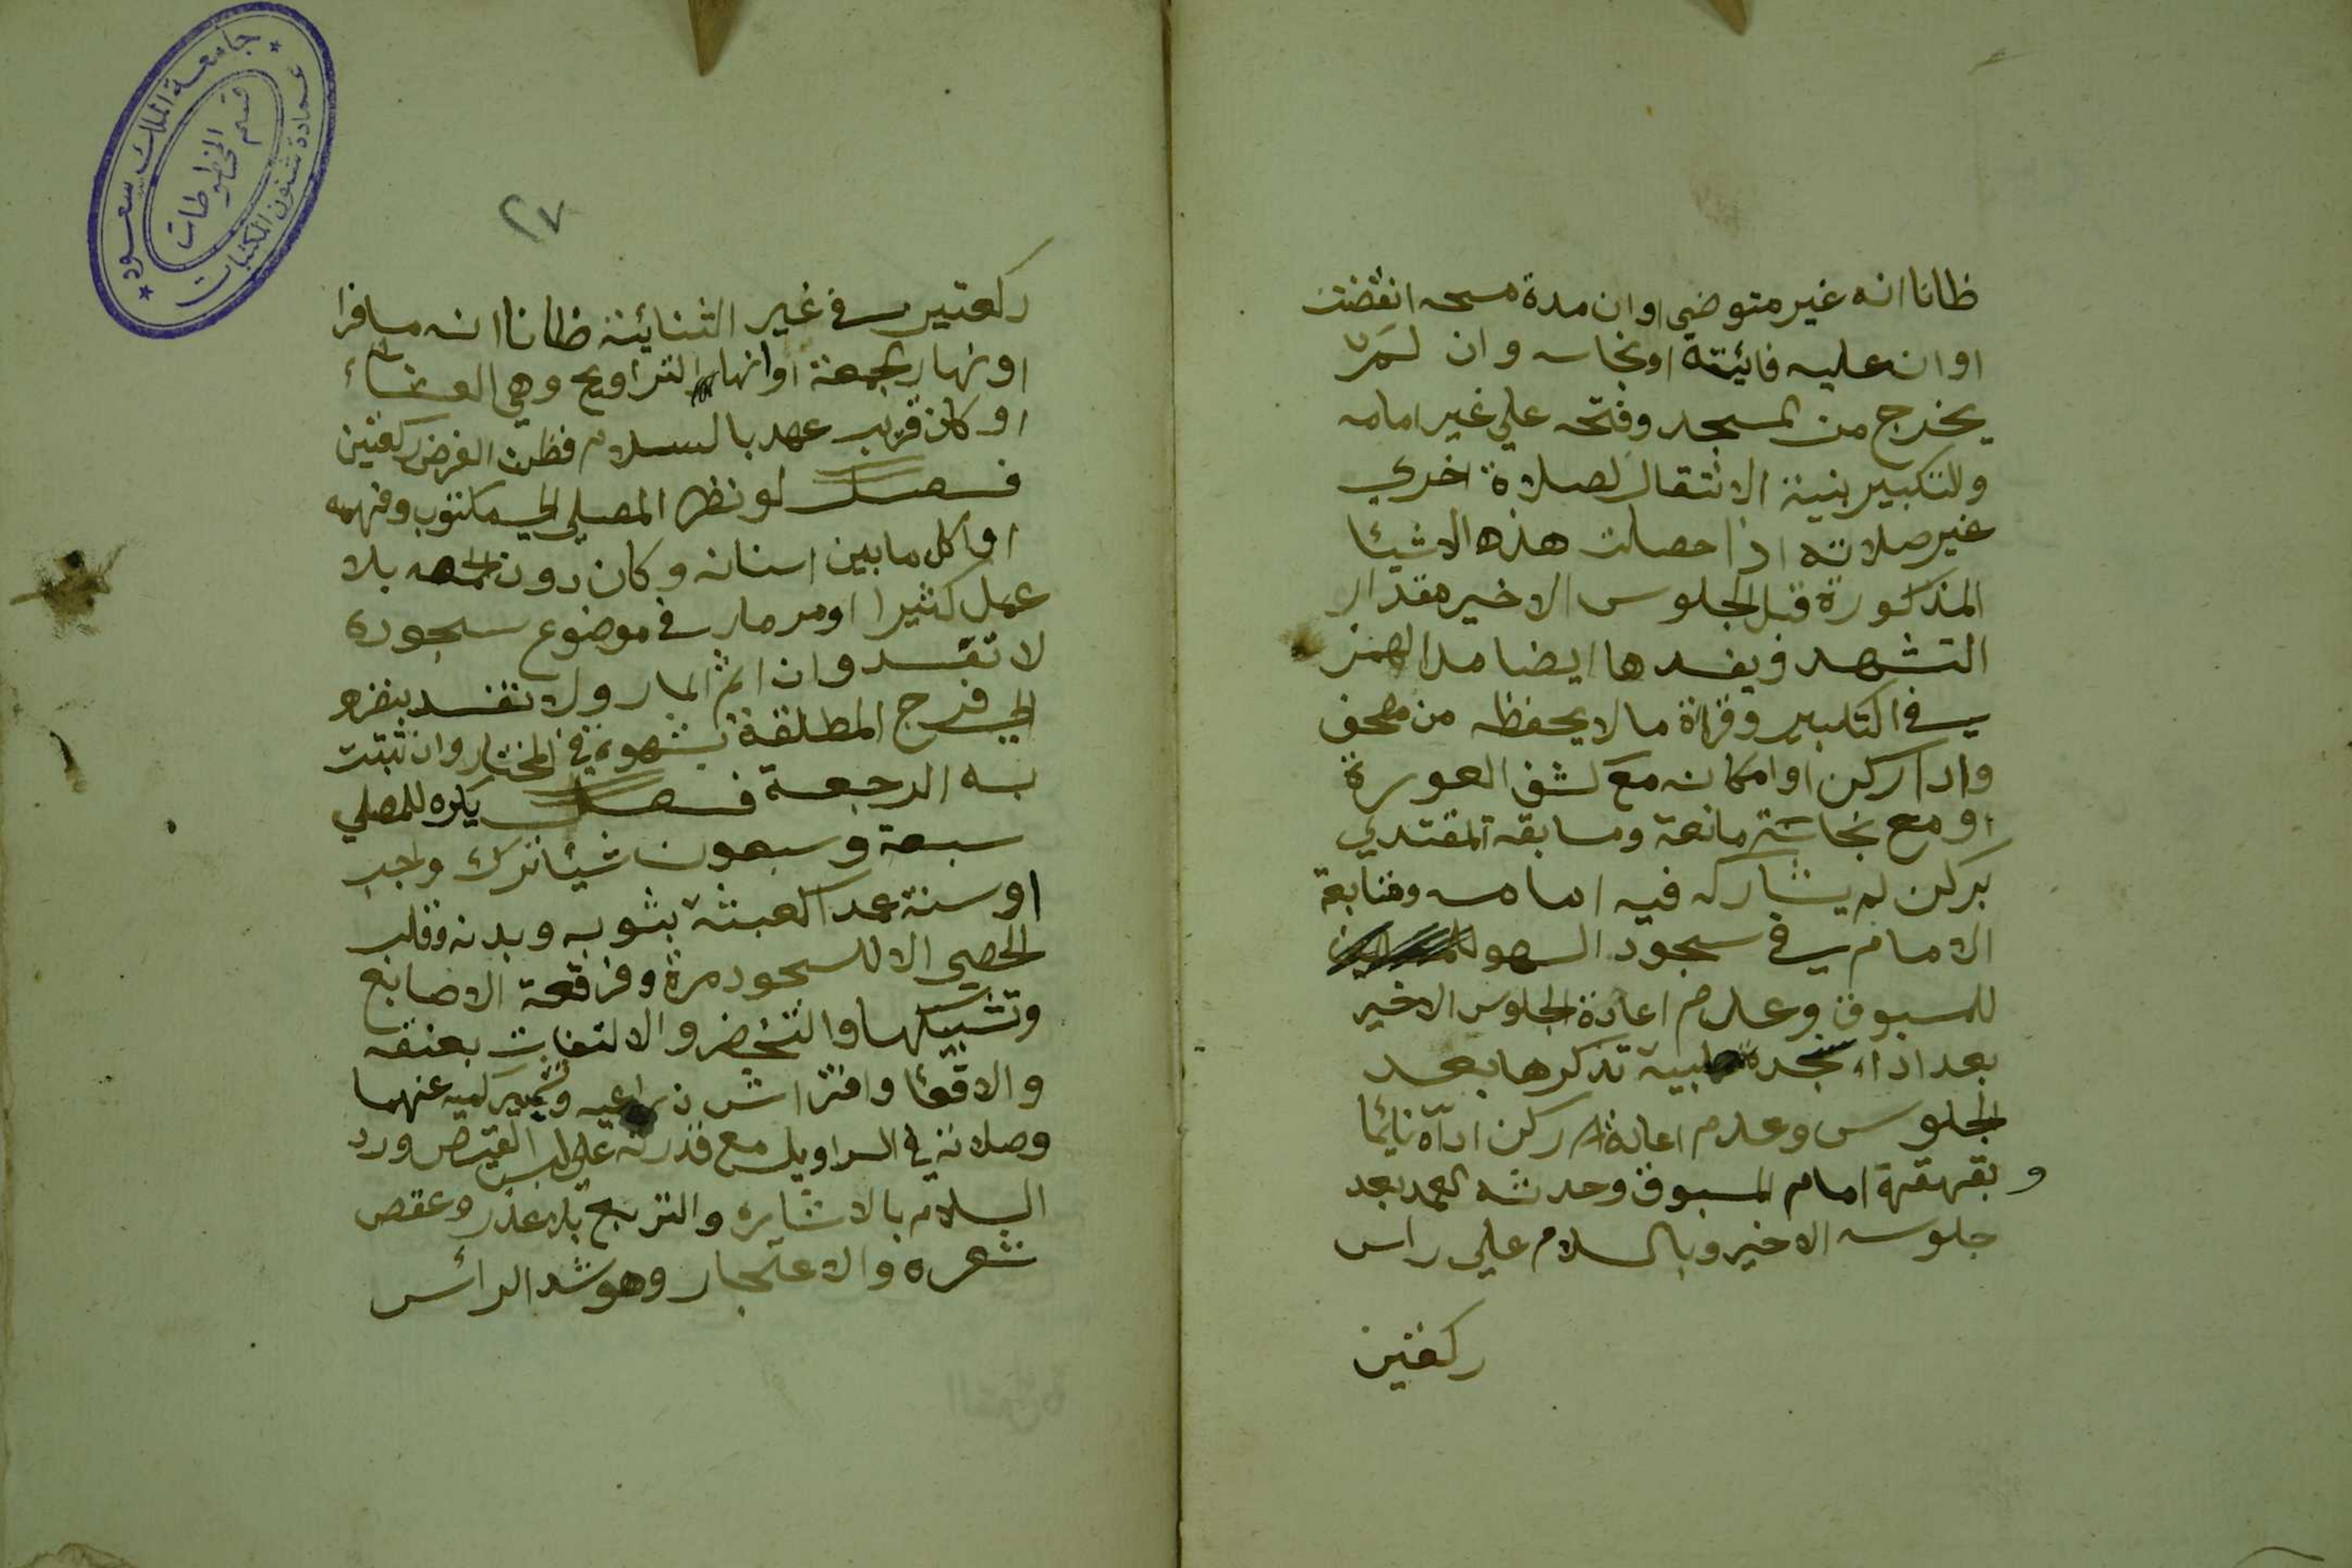 ظانا انه غير متوضي او ان مدة مسحه انقضت
او ان عليه فائيتة او نجاسه وان لم
يخرج من المسجد وفتحه علي غير امامه
والتكبير بنية الانتقال لصلاة اخري
غير صلاته اذا حصلت هذه الاشيئا
المذكورة قبل الجلوس الاخير مقدار
التشهد ويفسدها ايضا مد الهمز
في التكبير وقراة ما لا يحفظه من مصحف
واداركن او امكانه مع كشف العورة
او مع نجاسة مانعة ومسابقه المقتدي
بركن لم يشاركه فيه امامه ومتابعة
الامام في سجود السهو
للمسبوق وعدم اعادة الجلوس الاخير
بعد اداء سجدة صلبية تذكرها بعد
الجلوس وعدم اعادة ركن اداه نائيما
و بقهقهة امام المسبوق وحدثه العمد بعد
جلوسه الاخير وبالسلام علي راس
ركعتين
٢٧
ركعتين في غير الثنائية ظانا انه مسافرا
او نهار الجمعة او انها التراويح وهي العشاء
او كان قريب عهد بالسلام فظن الفرض ركعتين
فصل لو نظر المصلي الي مكتوب وفهمه
او اكل ما بين اسنانه وكان دون الحمصه بلا
عمل كثيرا او مر مار في موضوع سجوده
لا تفسد وان اثم المار ولا تفسد بنظره
الي فرج المطلقة بشهوة في المختار وان ثبتت
به الرجعة فصل يكره للمصلي
سبعة وسبعون شيئا ترك واجب
او سنة عمدا كعبثه بثوبه وبدنه وقلب
الحصي الا للسجود مرة وفرقعة الاصابع
وتشبيكها والتخضر والالتفات بعنقه
والاقعا وافتراش ذراعيه وتشمير كميه عنهما
وصلاته في السراويل مع قدرته علي لبس القميص ورد
السلام بالاشاره والتربع بلا عذر وعقص
شعره والاعتجار وهو شد الرائس
جامعة الملك سعود
عمادة شئون المكتبات
قسم المخطوطات